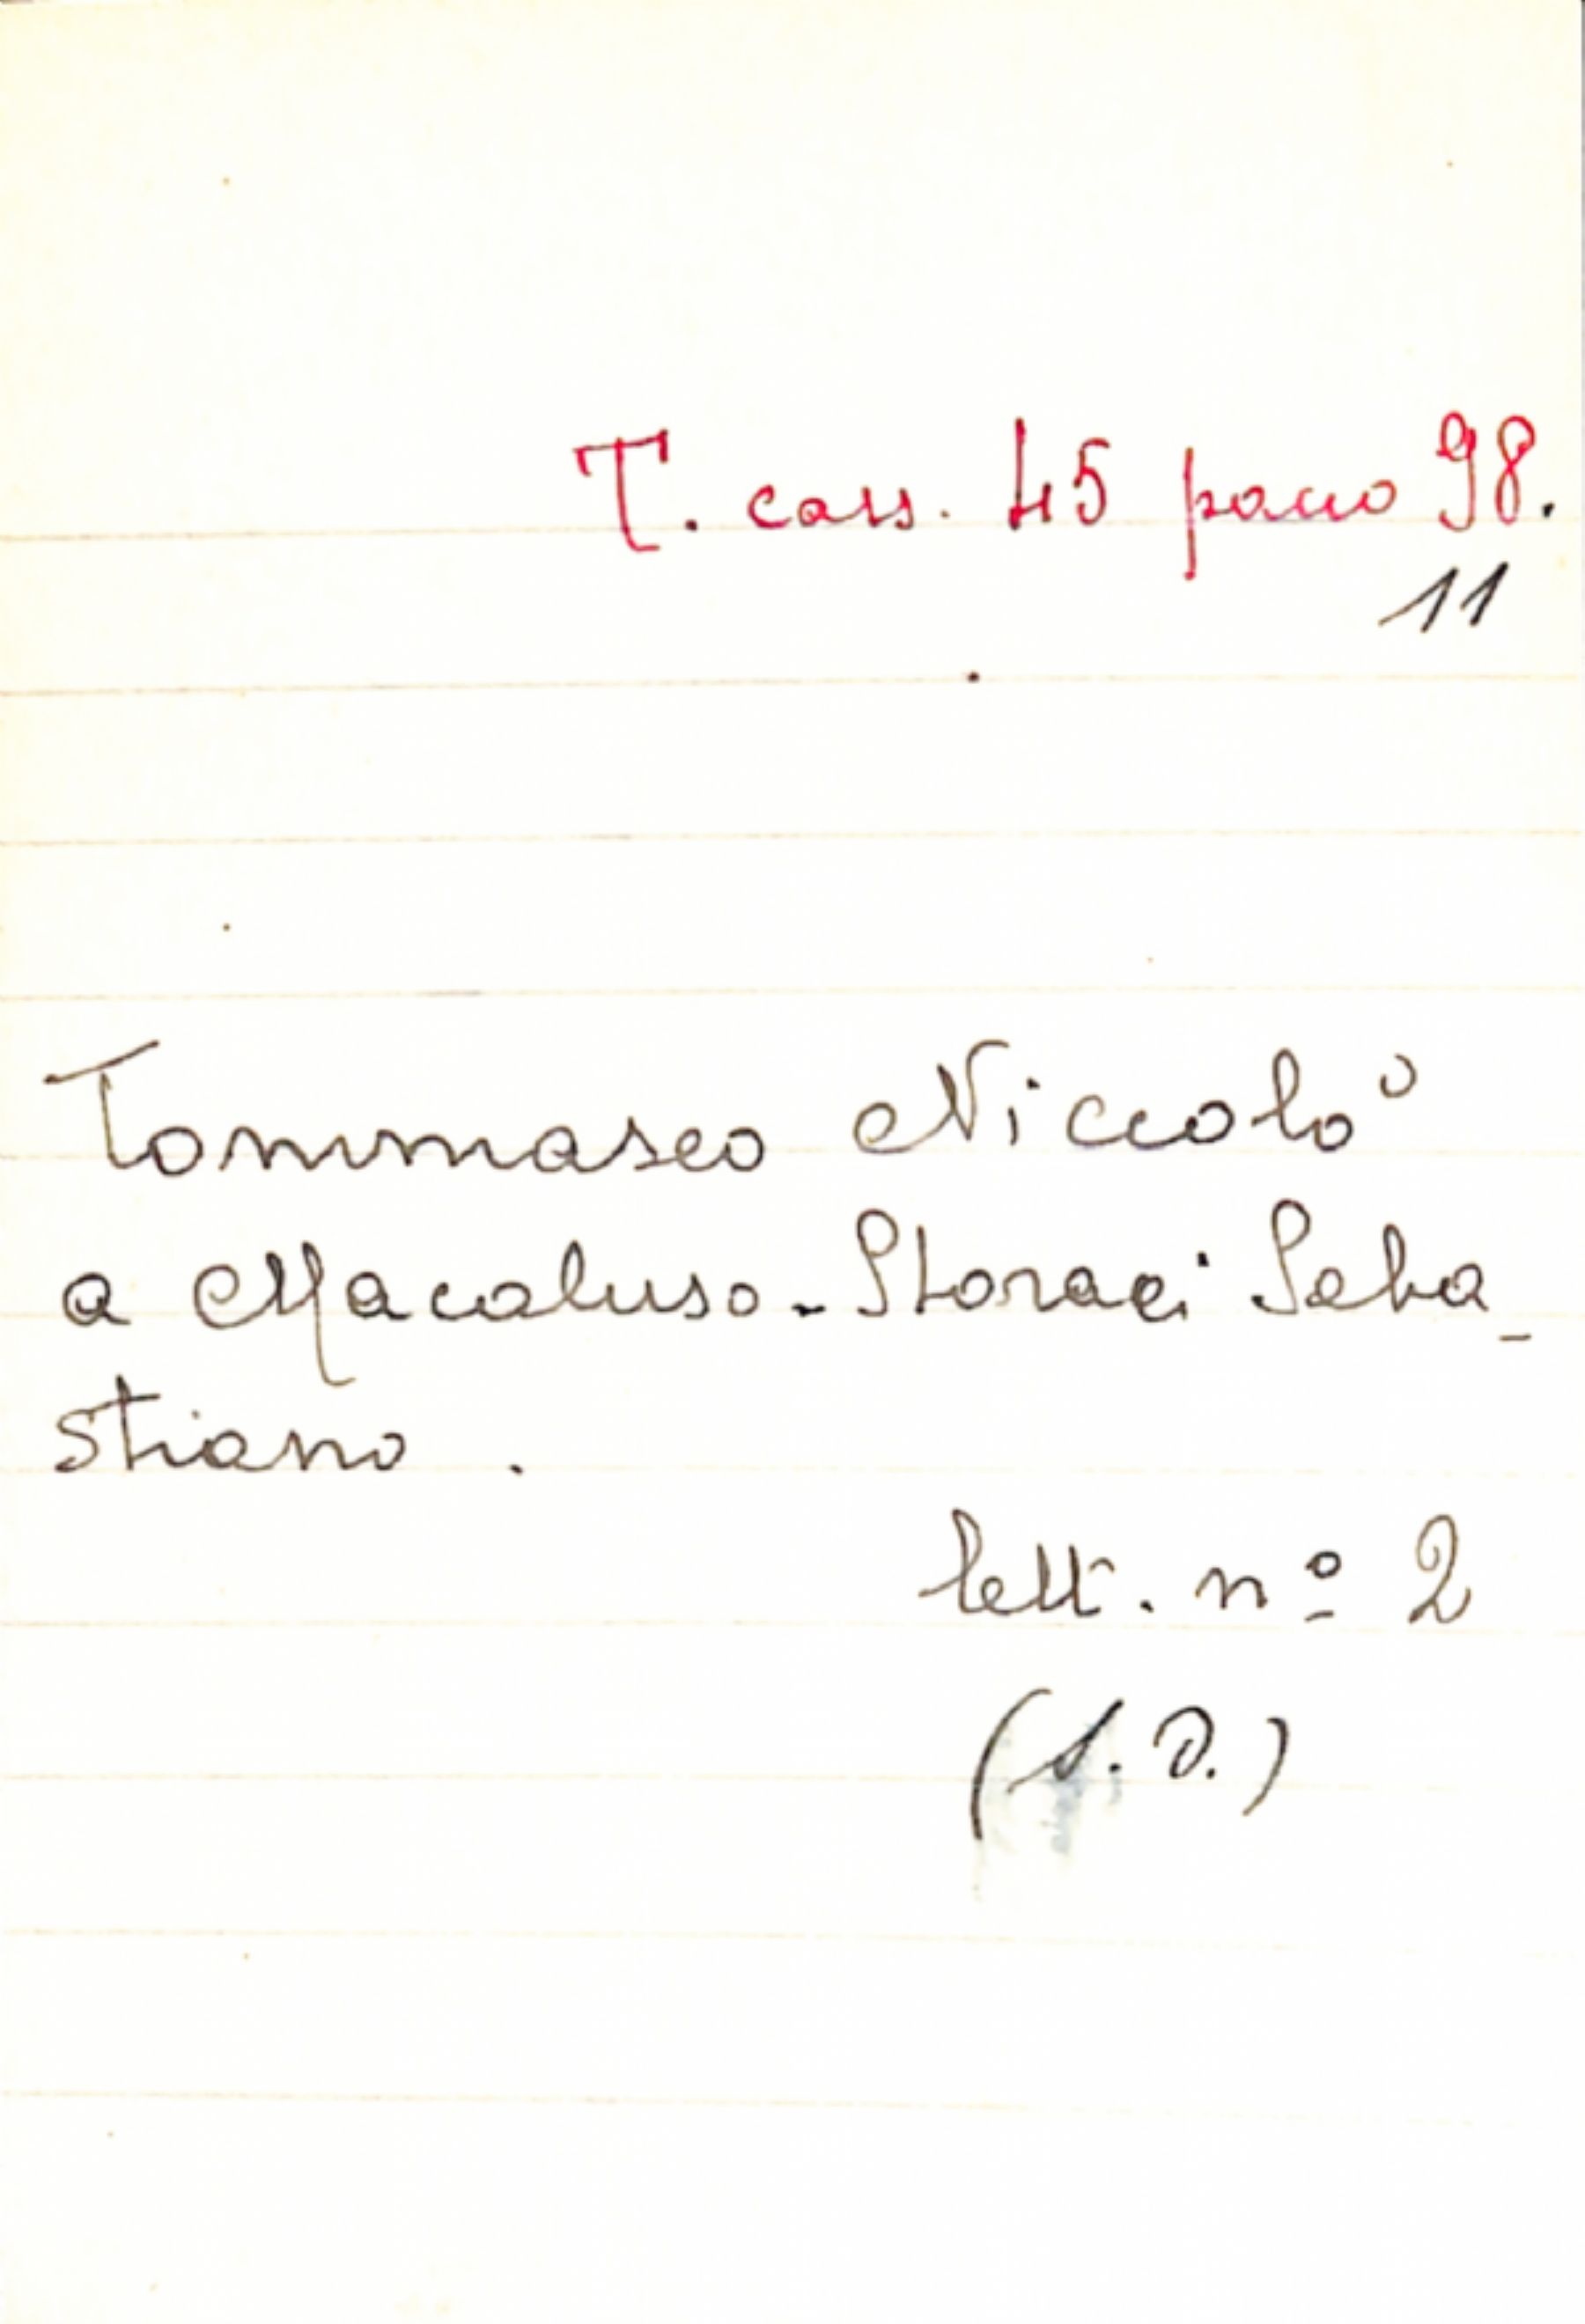 T. cass. 45 pacco 98.
11
Tommaseo Niccolò
a Macaluso-Storaci Seba-
stiano.
lett. nº 2
(S. D.)